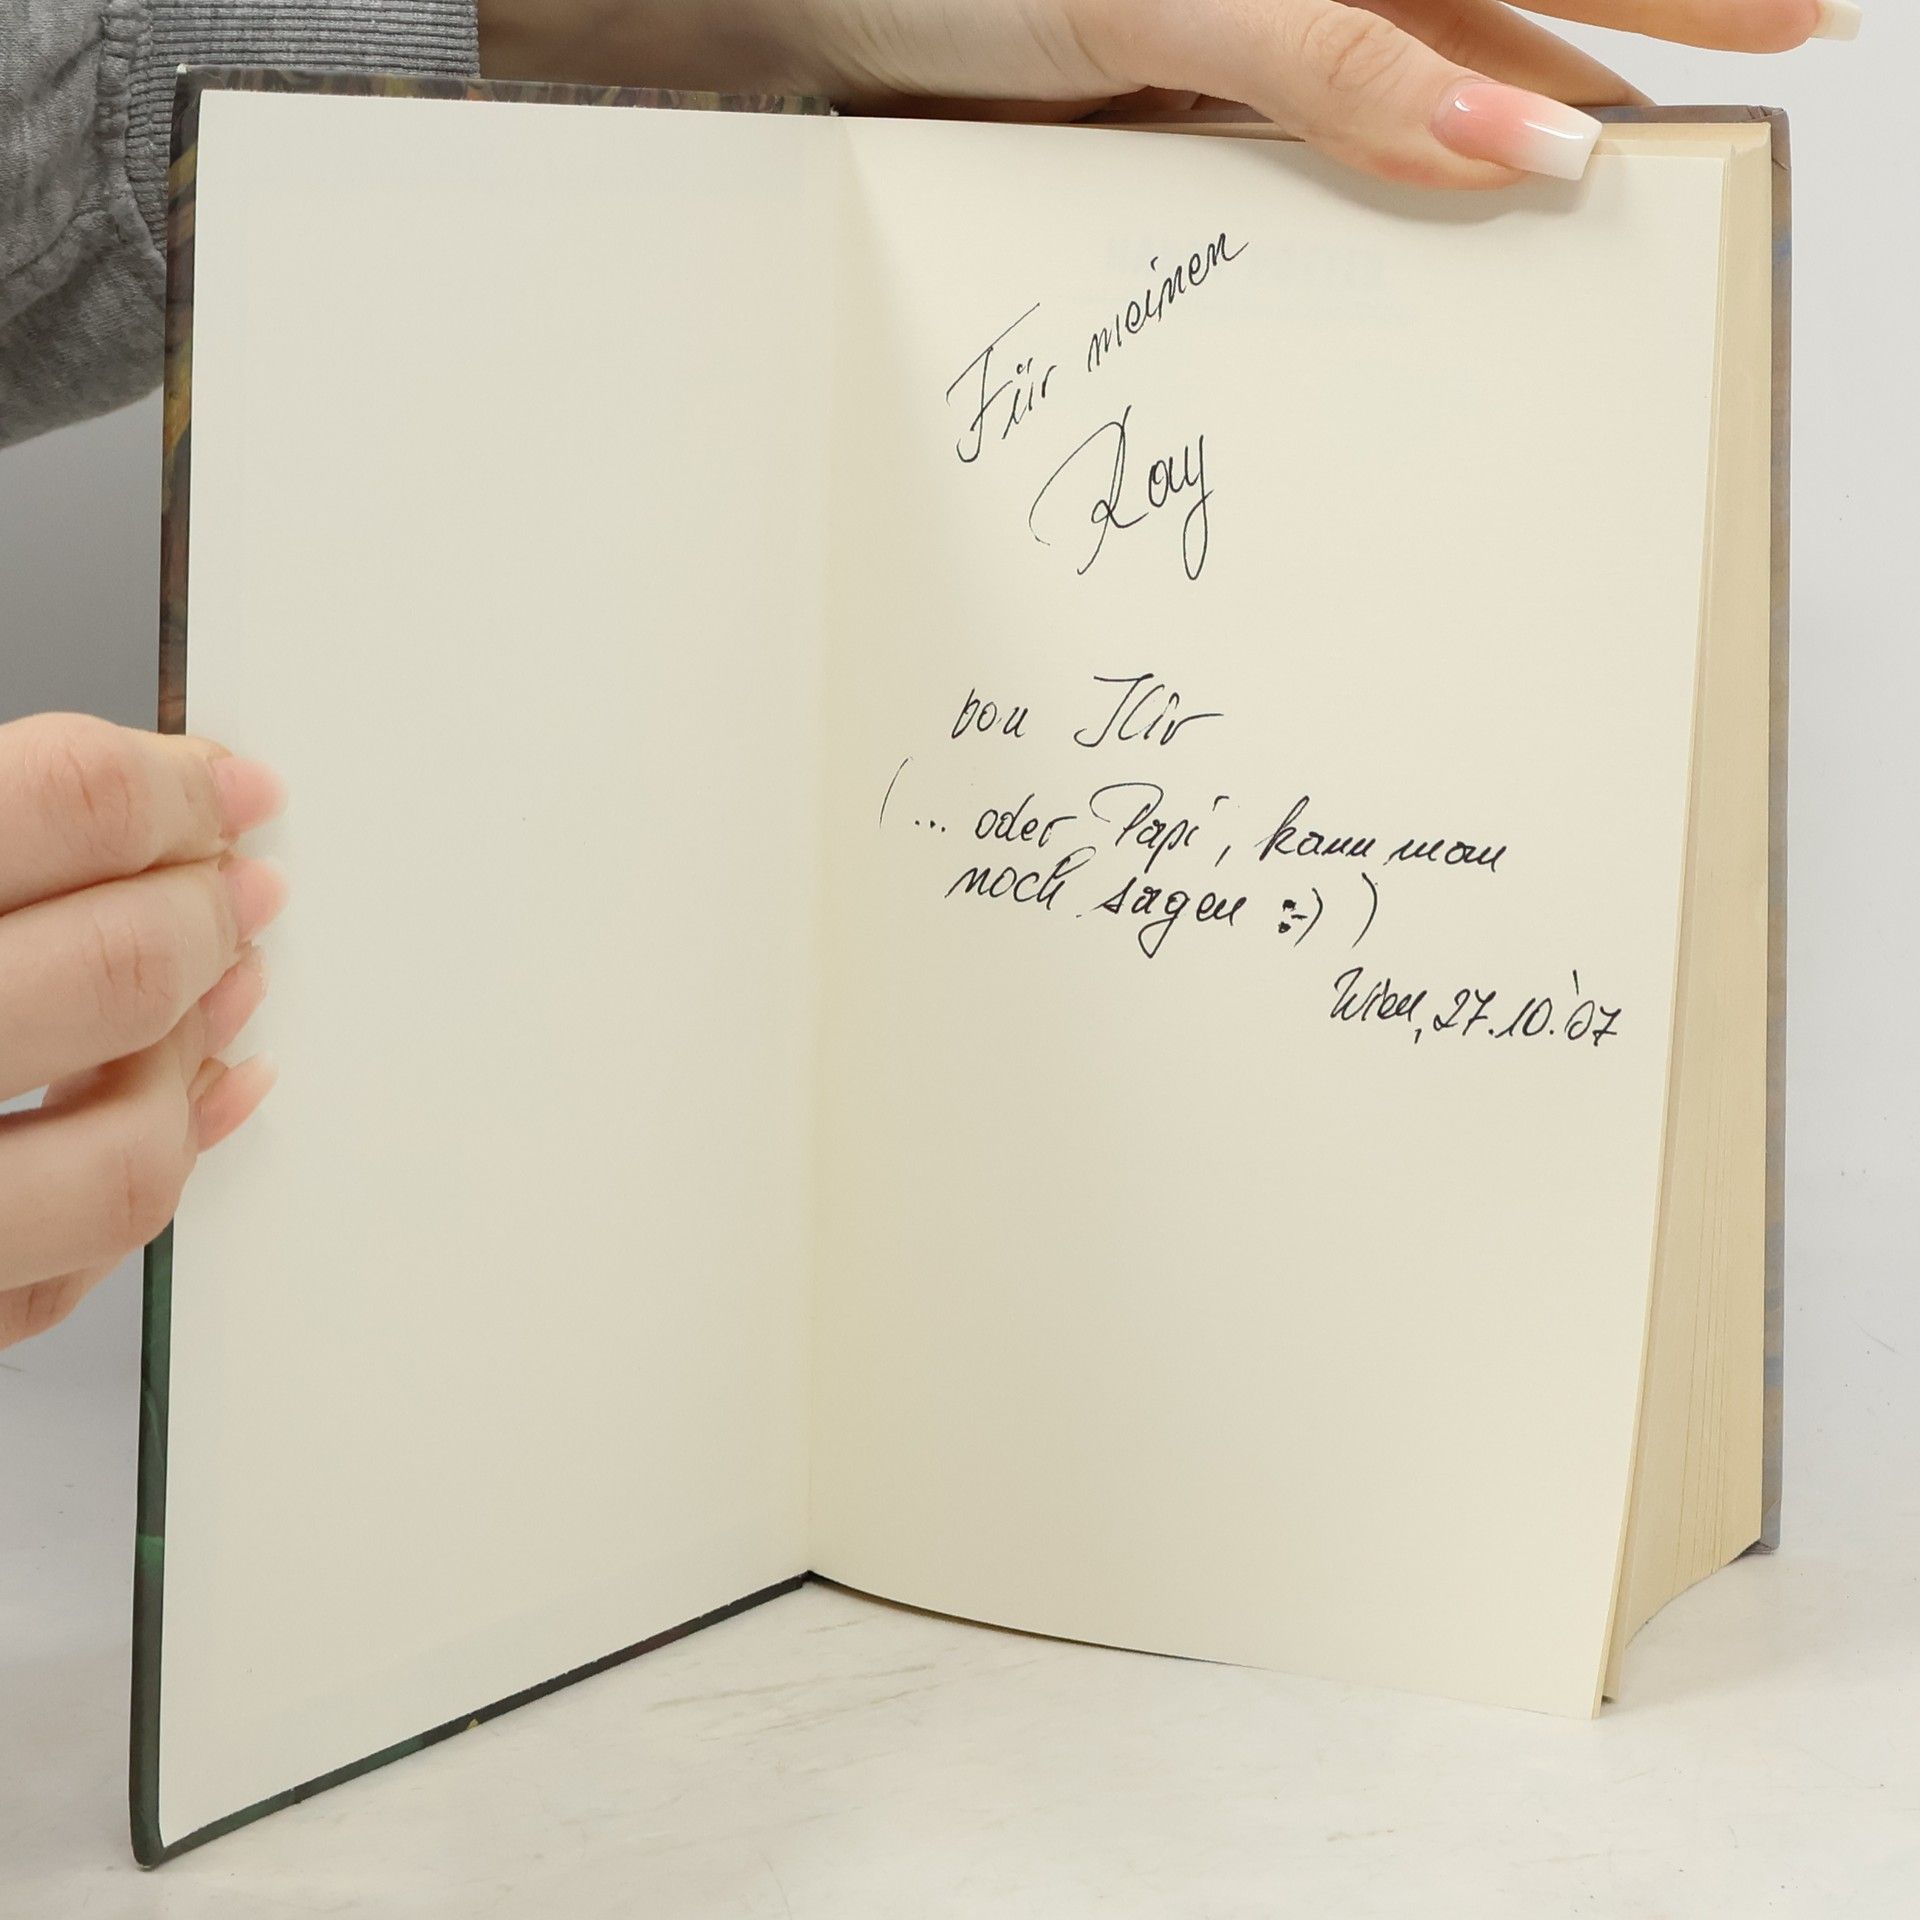 Für meinen
Ray
von
(... oder Papi, kann man
noch sagen :-) )
Wien, 27.10.'07